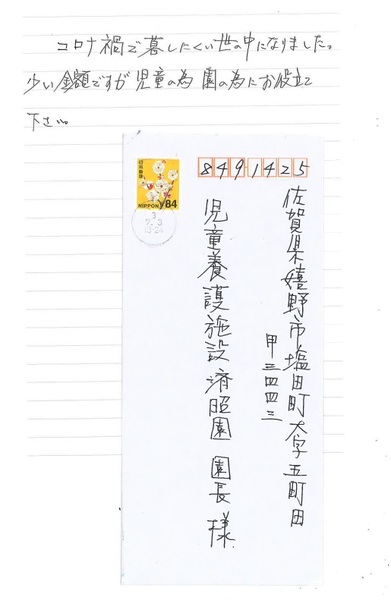 コロナ禍で暮しにくい世の中になりました。
少い金額ですが児童の為園の為にお役立て
下さい。
日本郵便
NIPPON ¥84
8491425
佐賀県嬉野市塩田町大字五町田
甲三四四三
児童養護施設済昭園 園長様